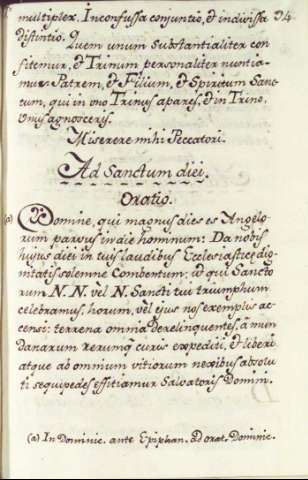 multiplex. Inconfussa conjuntio, et indivissa 94
distintio. Quem unum substantialiter con
fitemur, et Trinum personaliter nuntia-
mus Patrem, et Filium, et Spiritum Sanc
tum, qui in uno Trinus apares, et in Trino
Unus agnosceris.
Miserere mihi Peccatori.
Ad Sanctum diei.
Oratio.
(a) Domine, qui magnus dies es Angelo
rum parvus in die hominum: Da nobis
hujus diei in tuis laudibus Ecclesiastice dig
nitatis solemne Combentum; ut qui Sancto
rum N. N. vel N. Sancti tui triumphum
celebramus, horum, vel ejus nos exemplis ac
censi: terrena omnia derelinquentes, a mun
danarum rerumq curis expediti, et liberi
atque ab omnium vitiorum nexibus absolu
ti sequipedes effitiamur Salvatoris Domini.
(a) In Dominic. ante Epiphan. ad orat. Dominic.